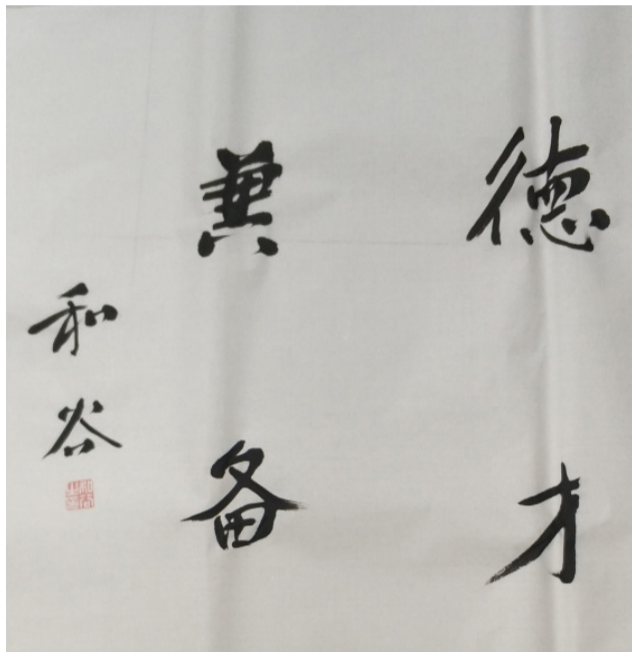 德才
兼备
和谷